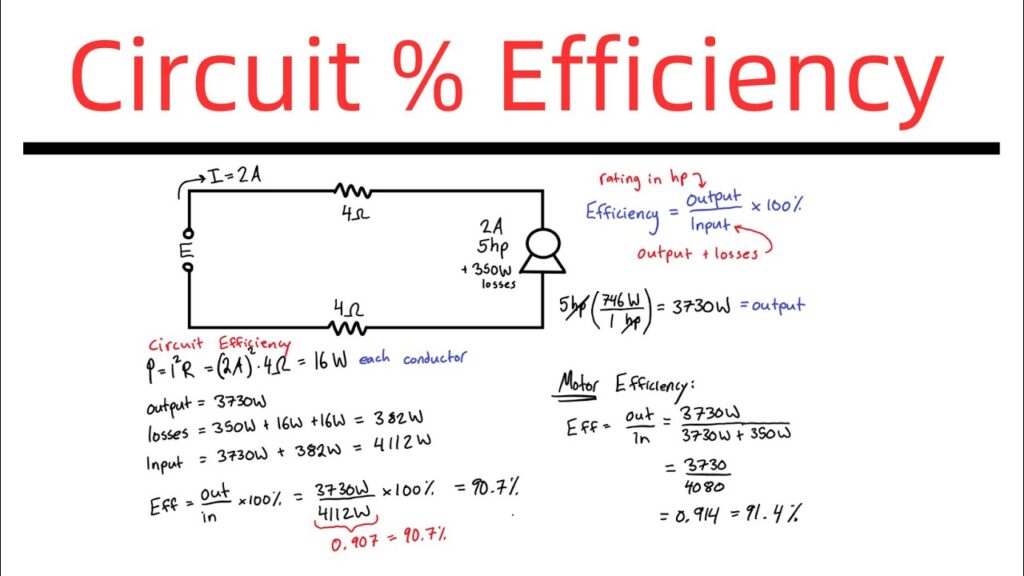 Circuit % Efficiency
I = 2A
4Ω
E
2A
5hp
+ 350W
losses
4Ω
rating in hp
Efficiency = output/Input × 100%
output + losses
5hp (746 W/1 hp) = 3730W = output
Circuit Efficiency
P = I²R = (2A)² · 4Ω = 16W each conductor
output = 3730W
losses = 350W + 16W + 16W = 382W
Input = 3730W + 382W = 4112W
Eff = out/in × 100% = 3730W/4112W × 100% = 90.7%
0.907 = 90.7%
Motor Efficiency:
Eff = out/In = 3730W/3730W + 350W
= 3730/4080
= 0.914 = 91.4%